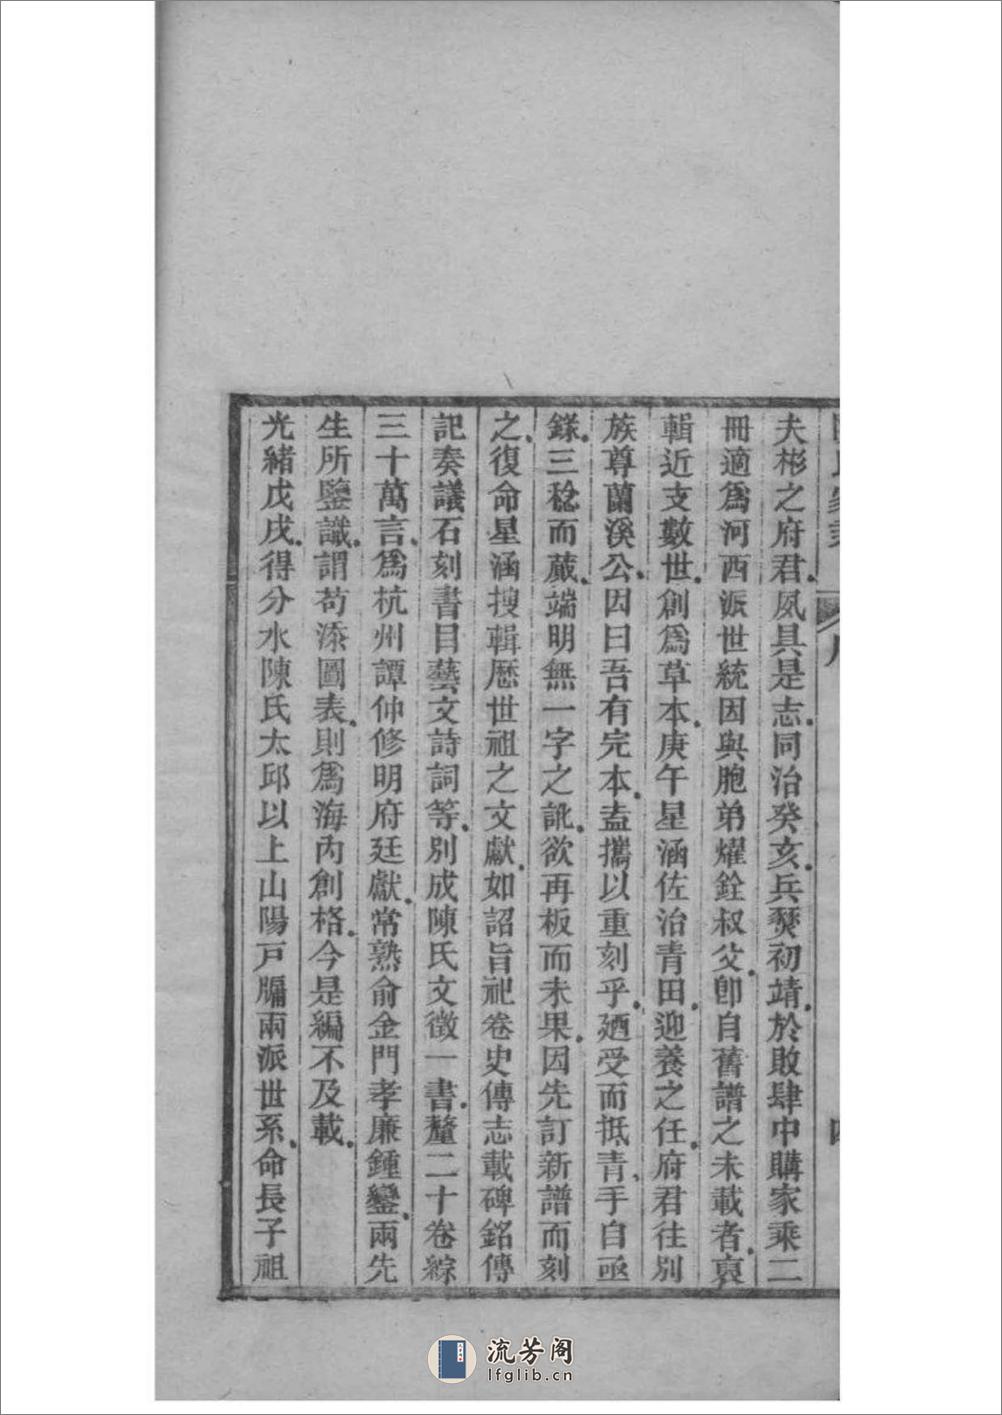 夫彬之府君夙具是志同治癸亥兵燹初靖於敗肆中購家乘二
冊適爲河西派世統因與胞弟燿銓叔父卽自舊譜之未載者裒
輯近支數世創爲草本庚午星涵佐治青田迎養之任府君往別
族尊蘭溪公因曰吾有完本盍攜以重刻乎廼受而抵青手自亟
錄三稔而蕆端明無一字之訛欲再板而未果因先訂新譜而刻
之復命星涵搜輯歷世祖之文獻如詔旨祀卷史傳志載碑銘傳
記奏議石刻書目藝文詩詞等別成陳氏文徵一書釐二十卷綜
三十萬言爲杭州譚仲修明府廷獻常熟俞金門孝廉鍾鑾兩先
生所鑒識謂苟添圖表則爲海內創格今是編不及載
光緒戊戌得分水陳氏太邱以上山陽戶牖兩派世系命長子祖
流芳阁
lfglib.cn